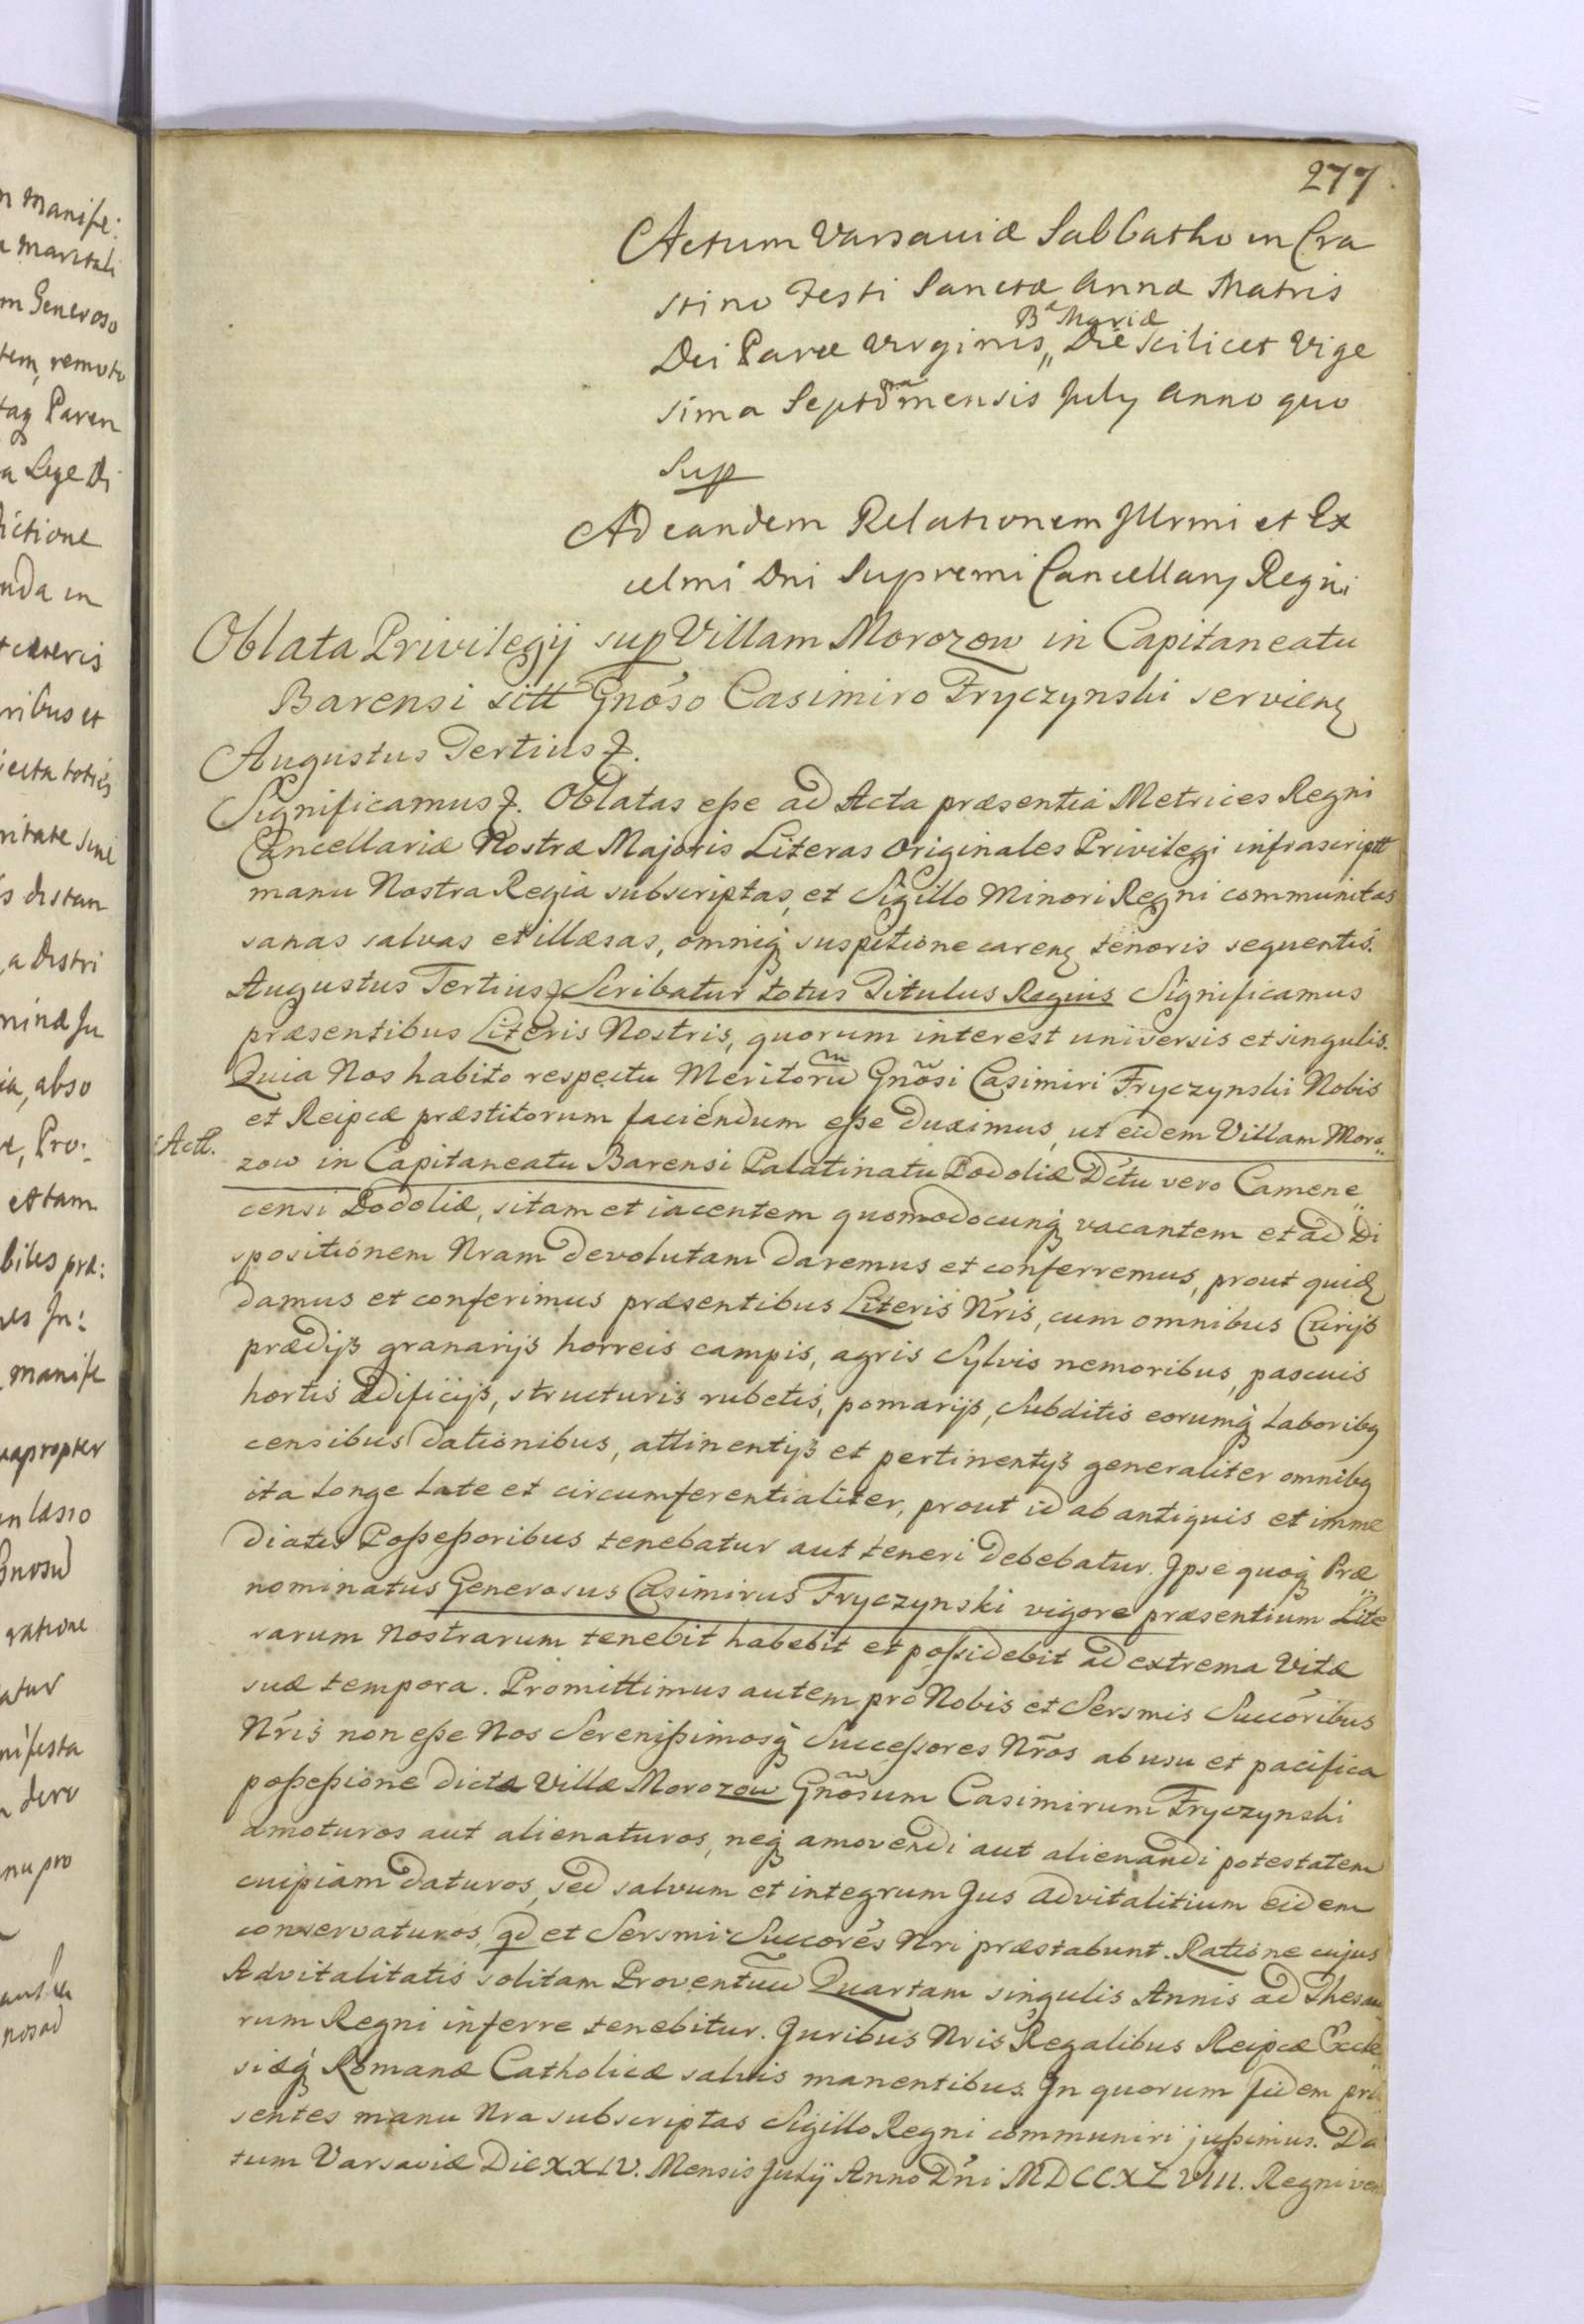 277
Actum Varsaviæ Sabbatho in Cra
stino Festi Sanctæ Annæ Matris
Dei Paræ Virginis„ Bæ Mariæ Die scilicet Vige
sima Septima mensis July Anno quo
sup
Ad eandem Relationem Jllrmi et Ex
celmi Dni Supremi Cancellarij Regni
Oblata Privilegij sup Villam Morozow in Capitaneatu
Barensi sitt Gnóso Casimiro Fryczynski servienz
Augustus Tertius z.
Significamus z. Oblatas eße ad Acta præsentia Metrices Regni
Cancellariæ Nostræ Majoris Literas Originales Privilegi infrascriptt
manu Nostra Regia subscriptas, et Sigillo Minori Regni communitas
sanas salvas et illæsas, omniq; suspitione carenz tenoris sequentis.
Augustus Tertius z Scribatur totus Titulus Regius Significamus
præsentibus Literis Nostris, quorum interest universis et singulis.
Quia Nos habito respectu Meritorũ Gnõsi Casimiri Fryczynski Nobis
et Reipcæ præstitorum faciendum eße duximus, ut eidem Villam Moro„
Actt.
zow in Capitaneatu Barensi Palatinatu Podoliæ Dctu vero Camene„
censi Podoliæ, sitam et iacentem quomodocunq; vacantem et ad Di
spositionem Nram devolutam daremus et conferremus, prout quidz
damus et conferimus præsentibus Literis Nris, cum omnibus Curijs
prædijs granarijs horreis campis, agris Sylvis nemoribus, pascuis
hortis ædificijs, structuris rubetis, pomarijs, Subditis eorumq; laboribq
censibus dationibus, attinentijs et pertinentijs generaliter omnibq
ita longe late et circumferentialiter, prout id ab antiquis et imme
diatis Poßeßoribus tenebatur aut teneri debebatur. Jpse quoq; Præ„
nominatus Generosus Casimirus Fryczynski vigore præsentium Lite
rarum Nostrarum tenebit habebit et poßidebit ad extrema Vitæ
suæ tempora. Promittimus autem pro Nobis et Sersmis Succóribus
Nris non eße Nos Serenißimosq; Succeßores Nrõs ab usu et pacifica
poßeßione dictæ Villæ Morozow Gnõsum Casimirum Fryczynski
amoturos aut alienaturos, neq; amovendi aut alienandi potestatem
cuipiam daturos, sed salvum et integrum Jus advitalitium eidem
conservaturos, qd et Sersmi Succorés Nri præstabunt. Ratione cujus
Advitalitatis solitam Proventuũ Quartam singulis Annis ad Thesau
rum Regni inferre tenebitur. Juribus Nris Regalibus Reipcæ Eccle„
siæq; Romanæ Catholicæ salvis manentibus. Jn quorum fidem præ
sentes manu Nra subscriptas Sigillo Regni communiri jußimus. Da
tum Varsaviæ Die XXIV. Mensis Julij Anno Dni MDCCXLVIII. Regni vero